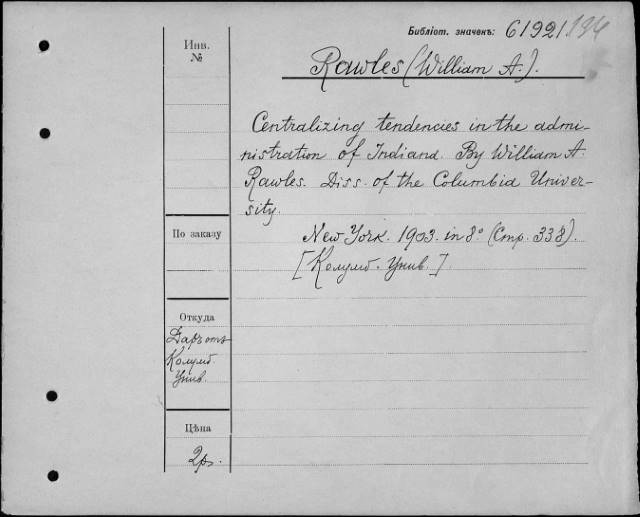 Библіот. значенъ: 61921.194
Инв.
№
Rawles (William A.).
Centralizing tendencies in the admi-
nistration of Indiana. By William A.
Rawles. Diss. of the Columbia Univer-
sity.
По заказу
New York. 1903. in 8° (Стр. 338).
[Колумб. Унив.]
Откуда
Даръ отъ
Колумб.
Унив.
Цѣна
2р.